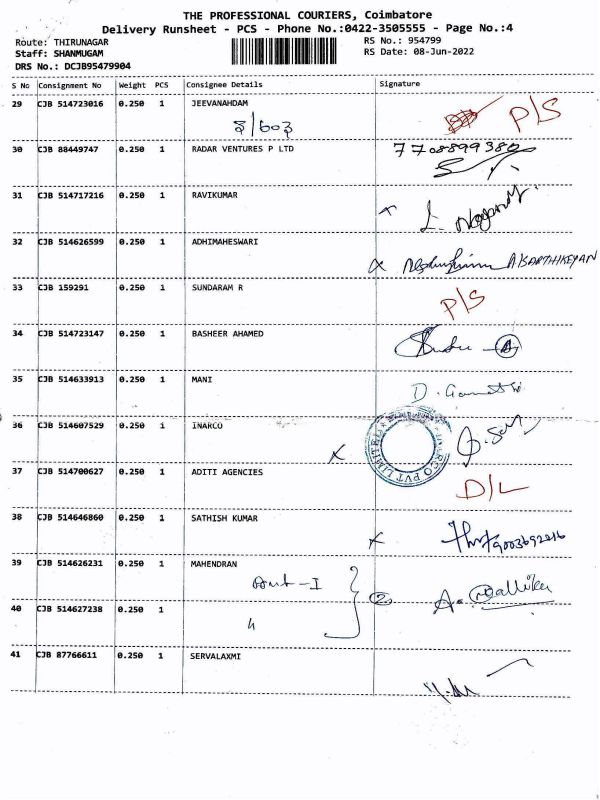 THE PROFESSIONAL COURIERS, Coimbatore
Delivery Runsheet - PCS - Phone No.:0422-3505555 - Page No.:4
Route: THIRUNAGAR RS No.: 954799
Staff: SHANMUGAM RS Date: 08-Jun-2022
DRS No.: DCJB95479904
S No Consignment No Weight PCS Consignee Details Signature
29 CJB 514723016 0.250 1 JEEVANAHDAM P/S
30 CJB 88449747 0.250 1 RADAR VENTURES P LTD 7708899380
31 CJB 514717216 0.250 1 RAVIKUMAR
32 CJB 514626599 0.250 1 ADHIMAHESWARI
A KARTHIKEYAN
33 CJB 159291 0.250 1 SUNDARAM R
P/S
34 CJB 514723147 0.250 1 BASHEER AHAMED
35 CJB 514633913 0.250 1 MANI
36 CJB 514607529 0.250 1 INARCO
INARCO PVT LIMITED
37 CJB 514700627 0.250 1 ADITI AGENCIES
D/L
38 CJB 514646860 0.250 1 SATHISH KUMAR
9003692216
39 CJB 514626231 0.250 1 MAHENDRAN
40 CJB 514627238 0.250 1
41 CJB 87766611 0.250 1 SERVALAXMI